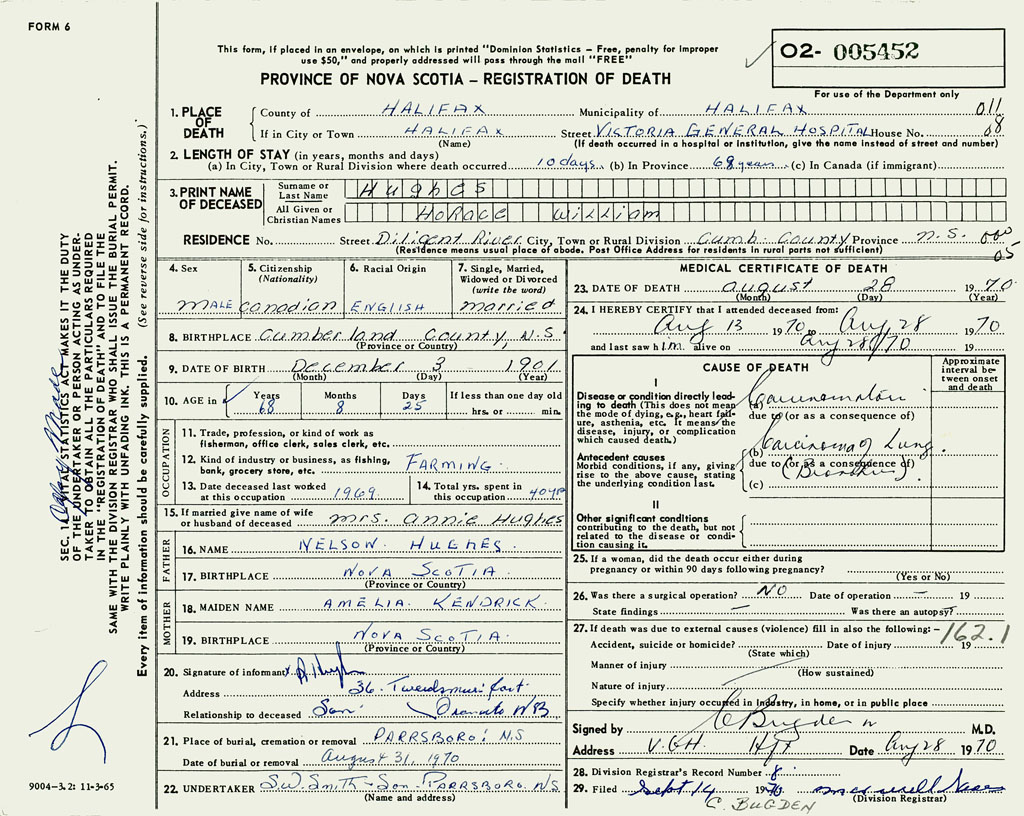 FORM 6
This form, if placed in an envelope, on which is printed "Dominion Statistics – Free, penalty for improper
use $50," and properly addressed will pass through the mail "FREE"
PROVINCE OF NOVA SCOTIA – REGISTRATION OF DEATH
02- 005452
For use of the Department only
1. PLACE OF DEATH
County of HALIFAX Municipality of HALIFAX 011
If in City or Town HALIFAX Street VICTORIA GENERAL HOSPITAL House No. 08
(Name) (If death occurred in a hospital or institution, give the name instead of street and number)
2. LENGTH OF STAY (in years, months and days)
(a) In City, Town or Rural Division where death occurred 10 days (b) In Province 68 years (c) In Canada (if immigrant)
3. PRINT NAME OF DECEASED
Surname or Last Name Hughes
All Given or Christian Names Horace William
RESIDENCE No. Street Diligent River City, Town or Rural Division Cumb County Province N.S. 000
(Residence means usual place of abode. Post Office Address for residents in rural parts not sufficient) 05
4. Sex
male
5. Citizenship (Nationality)
Canadian
6. Racial Origin
ENGLISH
7. Single, Married, Widowed or Divorced (write the word)
married
8. BIRTHPLACE Cumberland County, N.S.
(Province or Country)
9. DATE OF BIRTH December 3 1901
(Month) (Day) (Year)
10. AGE in Years Months Days If less than one day old
68 8 25 hrs. or min.
OCCUPATION
11. Trade, profession, or kind of work as
fishermen, office clerk, sales clerk, etc.
12. Kind of industry or business, as fishing,
bank, grocery store, etc. FARMING
13. Date deceased last worked
at this occupation 1969
14. Total yrs. spent in
this occupation 40yr
15. If married give name of wife
or husband of deceased Mrs. Annie Hughes
FATHER
16. NAME NELSON HUGHES
17. BIRTHPLACE NOVA SCOTIA
(Province or Country)
MOTHER
18. MAIDEN NAME AMELIA KENDRICK
19. BIRTHPLACE NOVA SCOTIA
(Province or Country)
20. Signature of informant
Address 36
Relationship to deceased Son
21. Place of burial, cremation or removal PARRSBORO, N.S
Date of burial or removal August 31, 1970
22. UNDERTAKER S.W. Smith - Son - PARRSBORO N/S
(Name and address)
MEDICAL CERTIFICATE OF DEATH
23. DATE OF DEATH August 28 1970
(Month) (Day) (Year)
24. I HEREBY CERTIFY that I attended deceased from:
Aug 13 1970 to Aug 28 1970
and last saw him alive on Aug 28/70 19
CAUSE OF DEATH
Approximate interval between onset and death
I
Disease or condition directly leading to death (This does not mean
the mode of dying, e.g., heart failure, asthenia, etc. It means the
disease, injury, or complication
which caused death.)
(a) Carcinomatosis
due to (or as a consequence of)
Antecedent causes
Morbid conditions, if any, giving
rise to the above cause, stating
the underlying condition last.
(b) Carcinoma of Lung
due to (or as a consequence of)
(Bronchus)
(c)
II
Other significant conditions
contributing to the death, but not
related to the disease or condition causing it.
25. If a woman, did the death occur either during
pregnancy or within 90 days following pregnancy?
(Yes or No)
26. Was there a surgical operation? NO Date of operation – 19
State findings — Was there an autopsy?
27. If death was due to external causes (violence) fill in also the following: – 162.1
Accident, suicide or homicide? Date of injury 19
(State which)
Manner of injury
(How sustained)
Nature of injury
Specify whether injury occurred in Industry, in home, or in public place
Signed by C Bugden M.D.
Address V.G.H. Hfx Date Aug 28 1970
28. Division Registrar's Record Number 8
29. Filed Sept 14 1970
(Division Registrar)
C. BUGDEN
SEC. 14 VITAL STATISTICS ACT MAKES IT THE DUTY
OF THE UNDERTAKER OR PERSON ACTING AS UNDER-
TAKER TO OBTAIN ALL THE PARTICULARS REQUIRED
IN THE "REGISTRATION OF DEATH" AND TO FILE THE
SAME WITH THE DIVISION REGISTRAR WHO SHALL ISSUE THE BURIAL PERMIT.
WRITE PLAINLY WITH UNFADING INK. THIS IS A PERMANENT RECORD.
Every item of information should be carefully supplied. (See reverse side for instructions.)
9004–3.2: 11-3-65